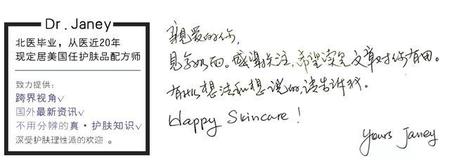 Dr.Janey
北医毕业，从医近20年
现定居美国任护肤品配方师
致力提供：
跨界视角√
国外最新资讯√
不用分辨的真·护肤知识√
深受护肤理性派的欢迎 。
亲爱的你，
见字如面。感谢关注，希望读完文章对你有用。
有什么想法和想说的，请告诉我。
Happy Skincare！
Yours Janey